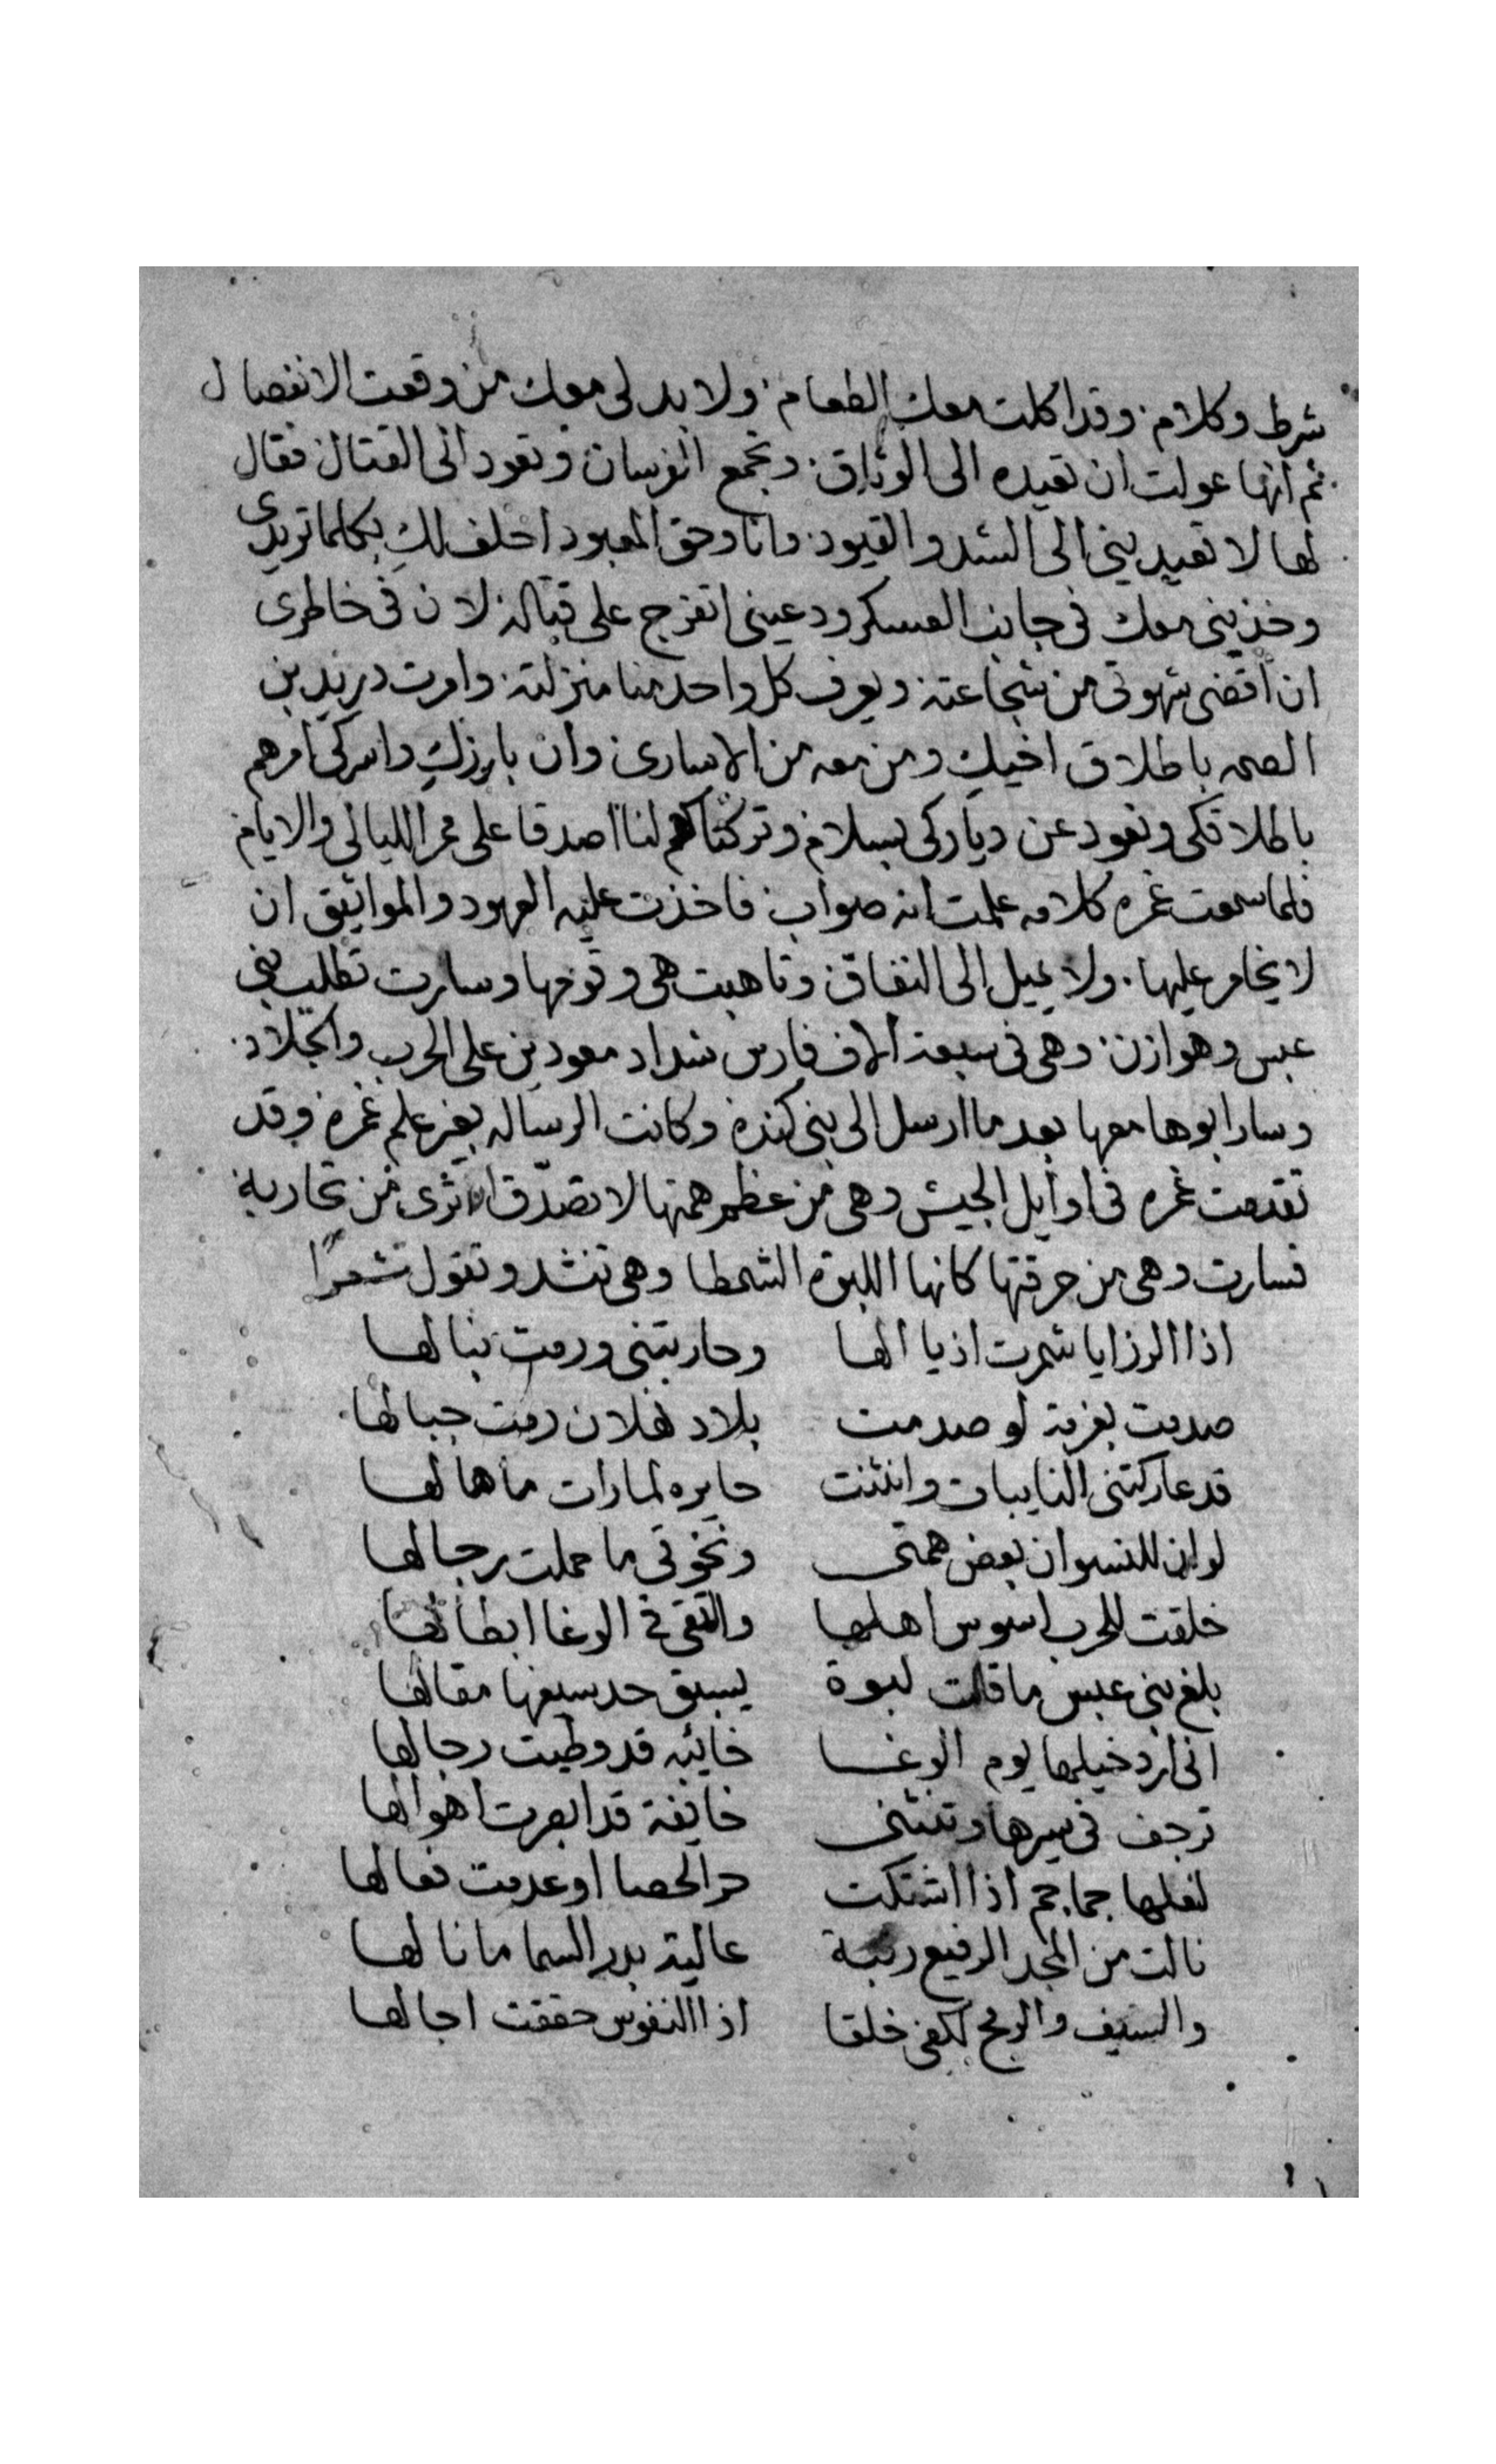 شرط وكلام وقد اكلت معك الطعام ولا بد لى معك من وقعت الانفصال
ثم انها عولت ان تعيده الى الوثاق وتجمع الفرسان وتعود الى القتال فقال
لها لا تعيدينى الى الشد والقيود وانا وحق المعبود احلف لكِ بكلما تريدى
وخذينى معك فى جانب العسكر ودعينى اتفرج على قتاله لان فى خاطرى
ان اقضى شهوتى من شجاعته ويعرف كل واحد منا منزلته وامرت دريد بن
الصمه باطلاق اخيكِ ومن معه من الاسارى وان بارزكِ واسركى امرهم
باطلاقكى ونعود عن دياركى بسلام وتركتاهم لنا اصدقا على ممر الليالى والايام
فلما سمعت غمره كلامه علمت انه صواب فاخذت عليه العهود والمواثيق ان
لا يخامر عليها ولا يميل الى النفاق وتاهبت هى وقومها وسارت تطلب بنى
عبس وهوازن وهى فى سبعة الاف فارس شداد معودين على الحرب والجلاد
وسار ابوها معها بعد ما ارسل الى بنى كنده وكانت الرساله بغير علم غمره وقد
تقدمت غمره فى اوايل الجيش وهى من عظم همتها لا تصدّق ان ترى من تحاربه
فسارت وهى من حرقتها كانها اللبوة الشمطا وهى تنشد وتقول شعرًا
اذا الرزايا شمرت اذيالها وحاربتنى ورمت نبالها
صدمت بعزمة لو صدمت بلاد غلان رمت جبالها
قد عاركتنى النايبات وانثنت حايره لما رات ما هالها
لو ان للنسوان بعض همتى ونخوتى ما حملت رجالها
خلقت للحرب اسوس اهلها والتقى فى الوغا ابطالها
بلغ بنى عبس ما قالت لبوة يسبق حد سيفها مقالها
انى ارد خيلها يوم الوغا خائبه قد وطيت رجالها
ترجف فى سيرها وتنثنى خايفة قد ابصرت اهوالها
لنعلها جماجم اذا اشتكت حر الحصا او عدمت نعالها
نالت من المجد الرفيع رتبة عالية بدر السما ما نالها
والسيف والرمح لكفى خلقا اذا النفوس حققت اجالها